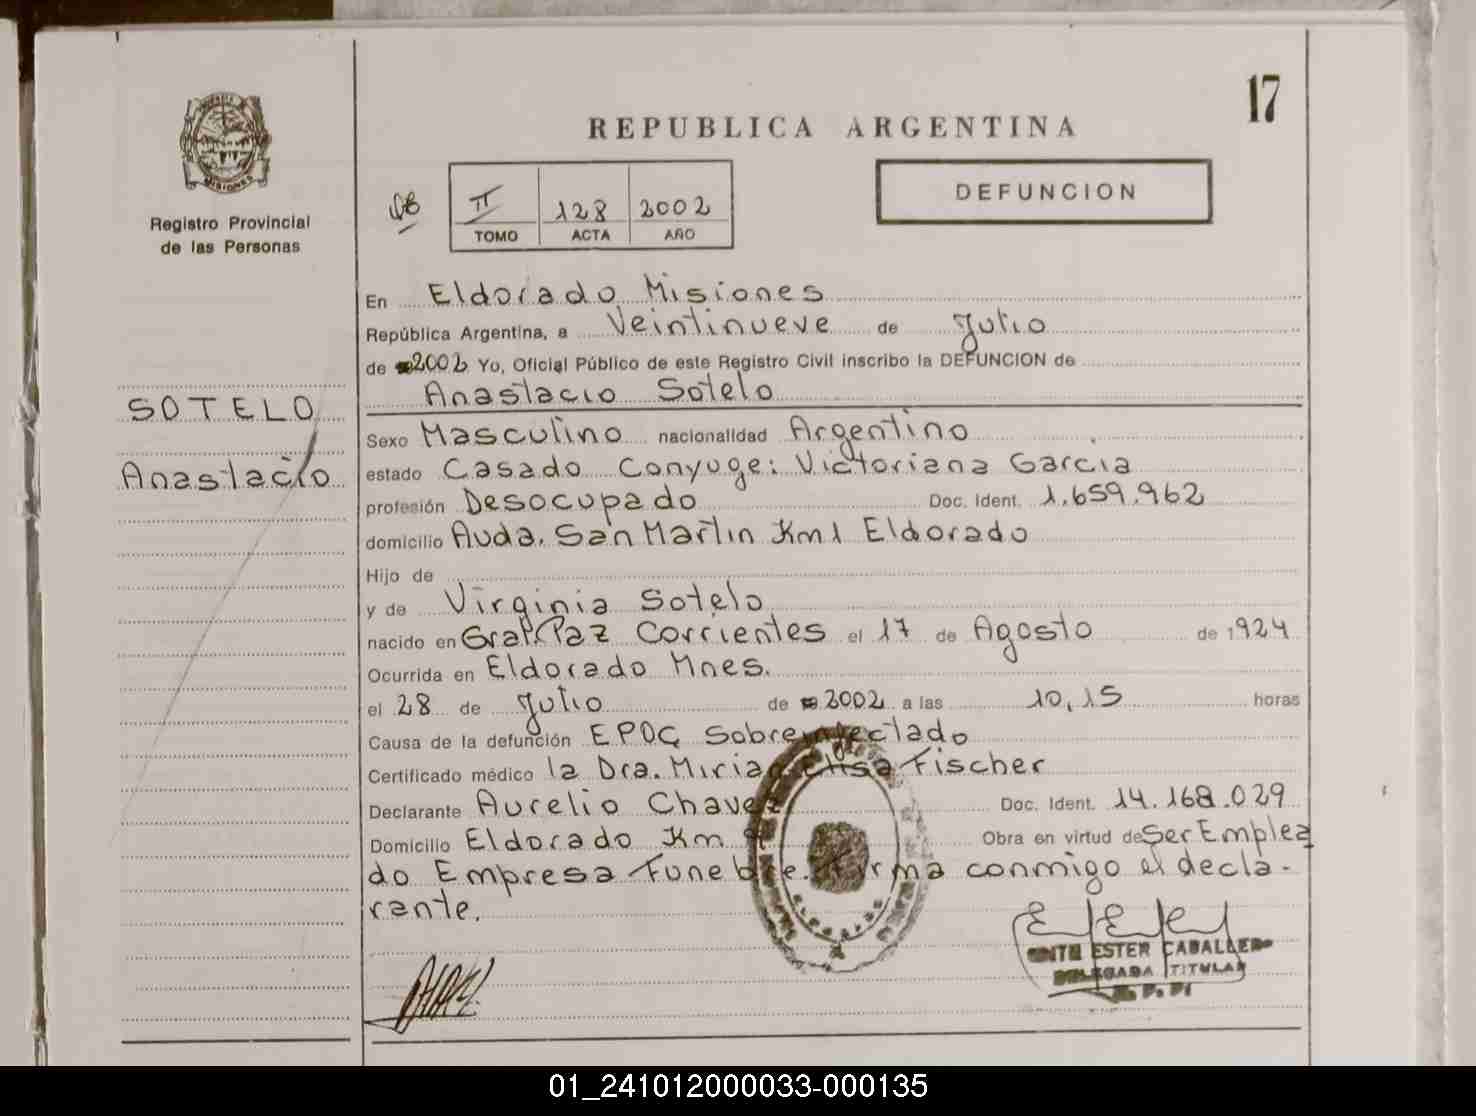 17
REPUBLICA ARGENTINA
DEFUNCION
II 128 2002
TOMO ACTA AÑO
MISIONES
Registro Provincial
de las Personas
SOTELO
Anastacio
En Eldorado Misiones
República Argentina, a Veintinueve de Julio
de 2002 Yo, Oficial Público de este Registro Civil inscribo la DEFUNCION de
Anastacio Sotelo
Sexo Masculino nacionalidad Argentino
estado Casado Conyuge: Victoriana Garcia
profesión Desocupado Doc. Ident. 1.659.962
domicilio Avda. San Martin Km 1 Eldorado
Hijo de
y de Virginia Sotelo
nacido en Gral Paz Corrientes el 17 de Agosto de 1924
Ocurrida en Eldorado Mnes.
el 28 de Julio de 2002 a las 10,15 horas
Causa de la defunción EPOC Sobreinfectado
Certificado médico la Dra. Miriam Elisa Fischer
Declarante Aurelio Chavez Doc. Ident. 14.168.029
Domicilio Eldorado Km 9 Obra en virtud de Ser Emplea
do Empresa Funebre. Firma conmigo el decla-
rante.
ESTER CABALLERO
DELEGADA TITULAR
R. P. P.
01_241012000033-000135